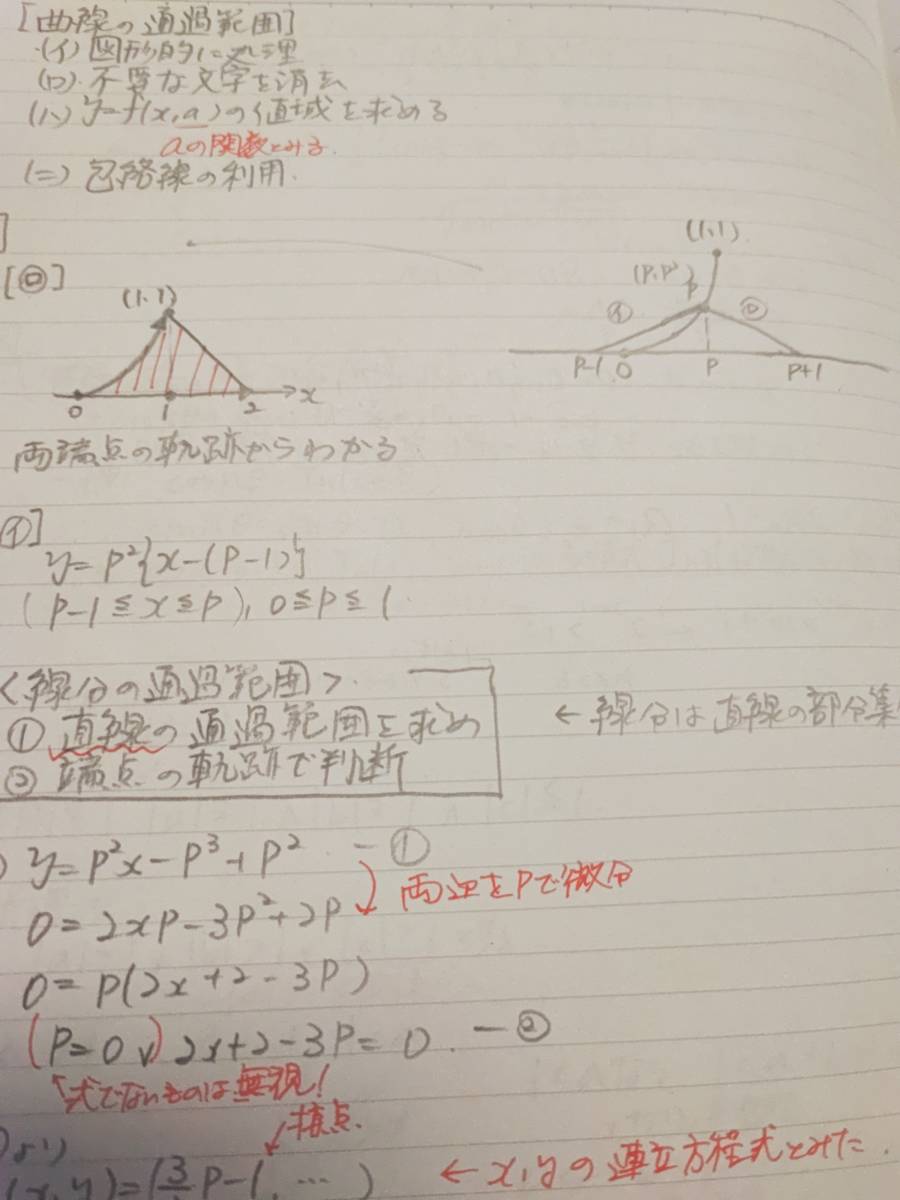 [曲線の通過範囲]
(イ) 図形的に処理
(ロ) 不要な文字を消去
(ハ) y=f(x,a)の値域を求める
aの関数とみる.
(ニ) 包絡線の利用.
]
[ロ]
(1,1)
0 1 2 x
(1,1)
(P,P²)
P
イ ロ
P-1 0 P P+1
両端点の軌跡からわかる
イ]
y=P²{x-(P-1)}
(P-1≦x≦P), 0≦P≦1
<線分の通過範囲>
① 直線の通過範囲を求め
② 端点の軌跡で判断
← 線分は直線の部分集
) y=P²x-P³+P² ー①
両辺をPで微分
0=2xP-3P²+2P
0=P(2x+2-3P)
(P=0 ∨) 2x+2-3P=0. ー②
式でないものは無視!
接点.
)より
(x,y)=(3/2P-1, …)
← x,yの連立方程式とみた.